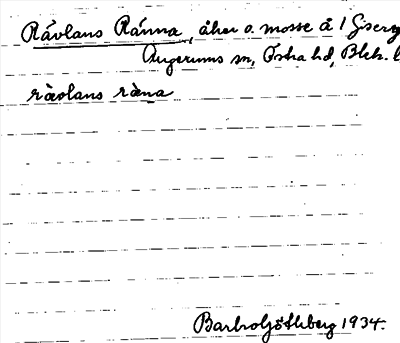 Rävlans Ränna, åker o. mosse å 1
Augerums sn, Östra hd, Blek.
rävlans räna
Barbro Götlberg 1934.